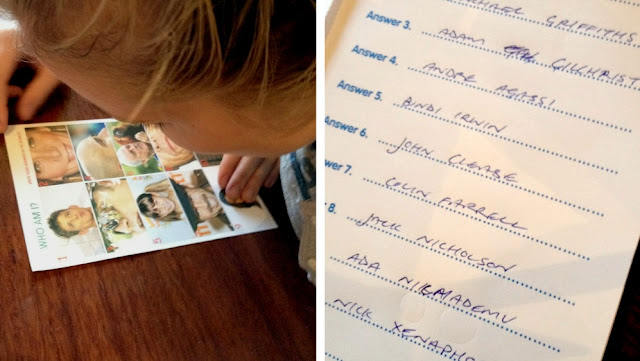 WHO AM I?
1
MICHAEL GRIFFITHS
Answer 3.
ADAM GILCHRIST
Answer 4.
ANDRE AGASSI
Answer 5.
BINDI IRWIN
Answer 6.
JOHN CLEASE
COLIN FARRELL
8.
JACK NICHOLSON
ADA
NICK